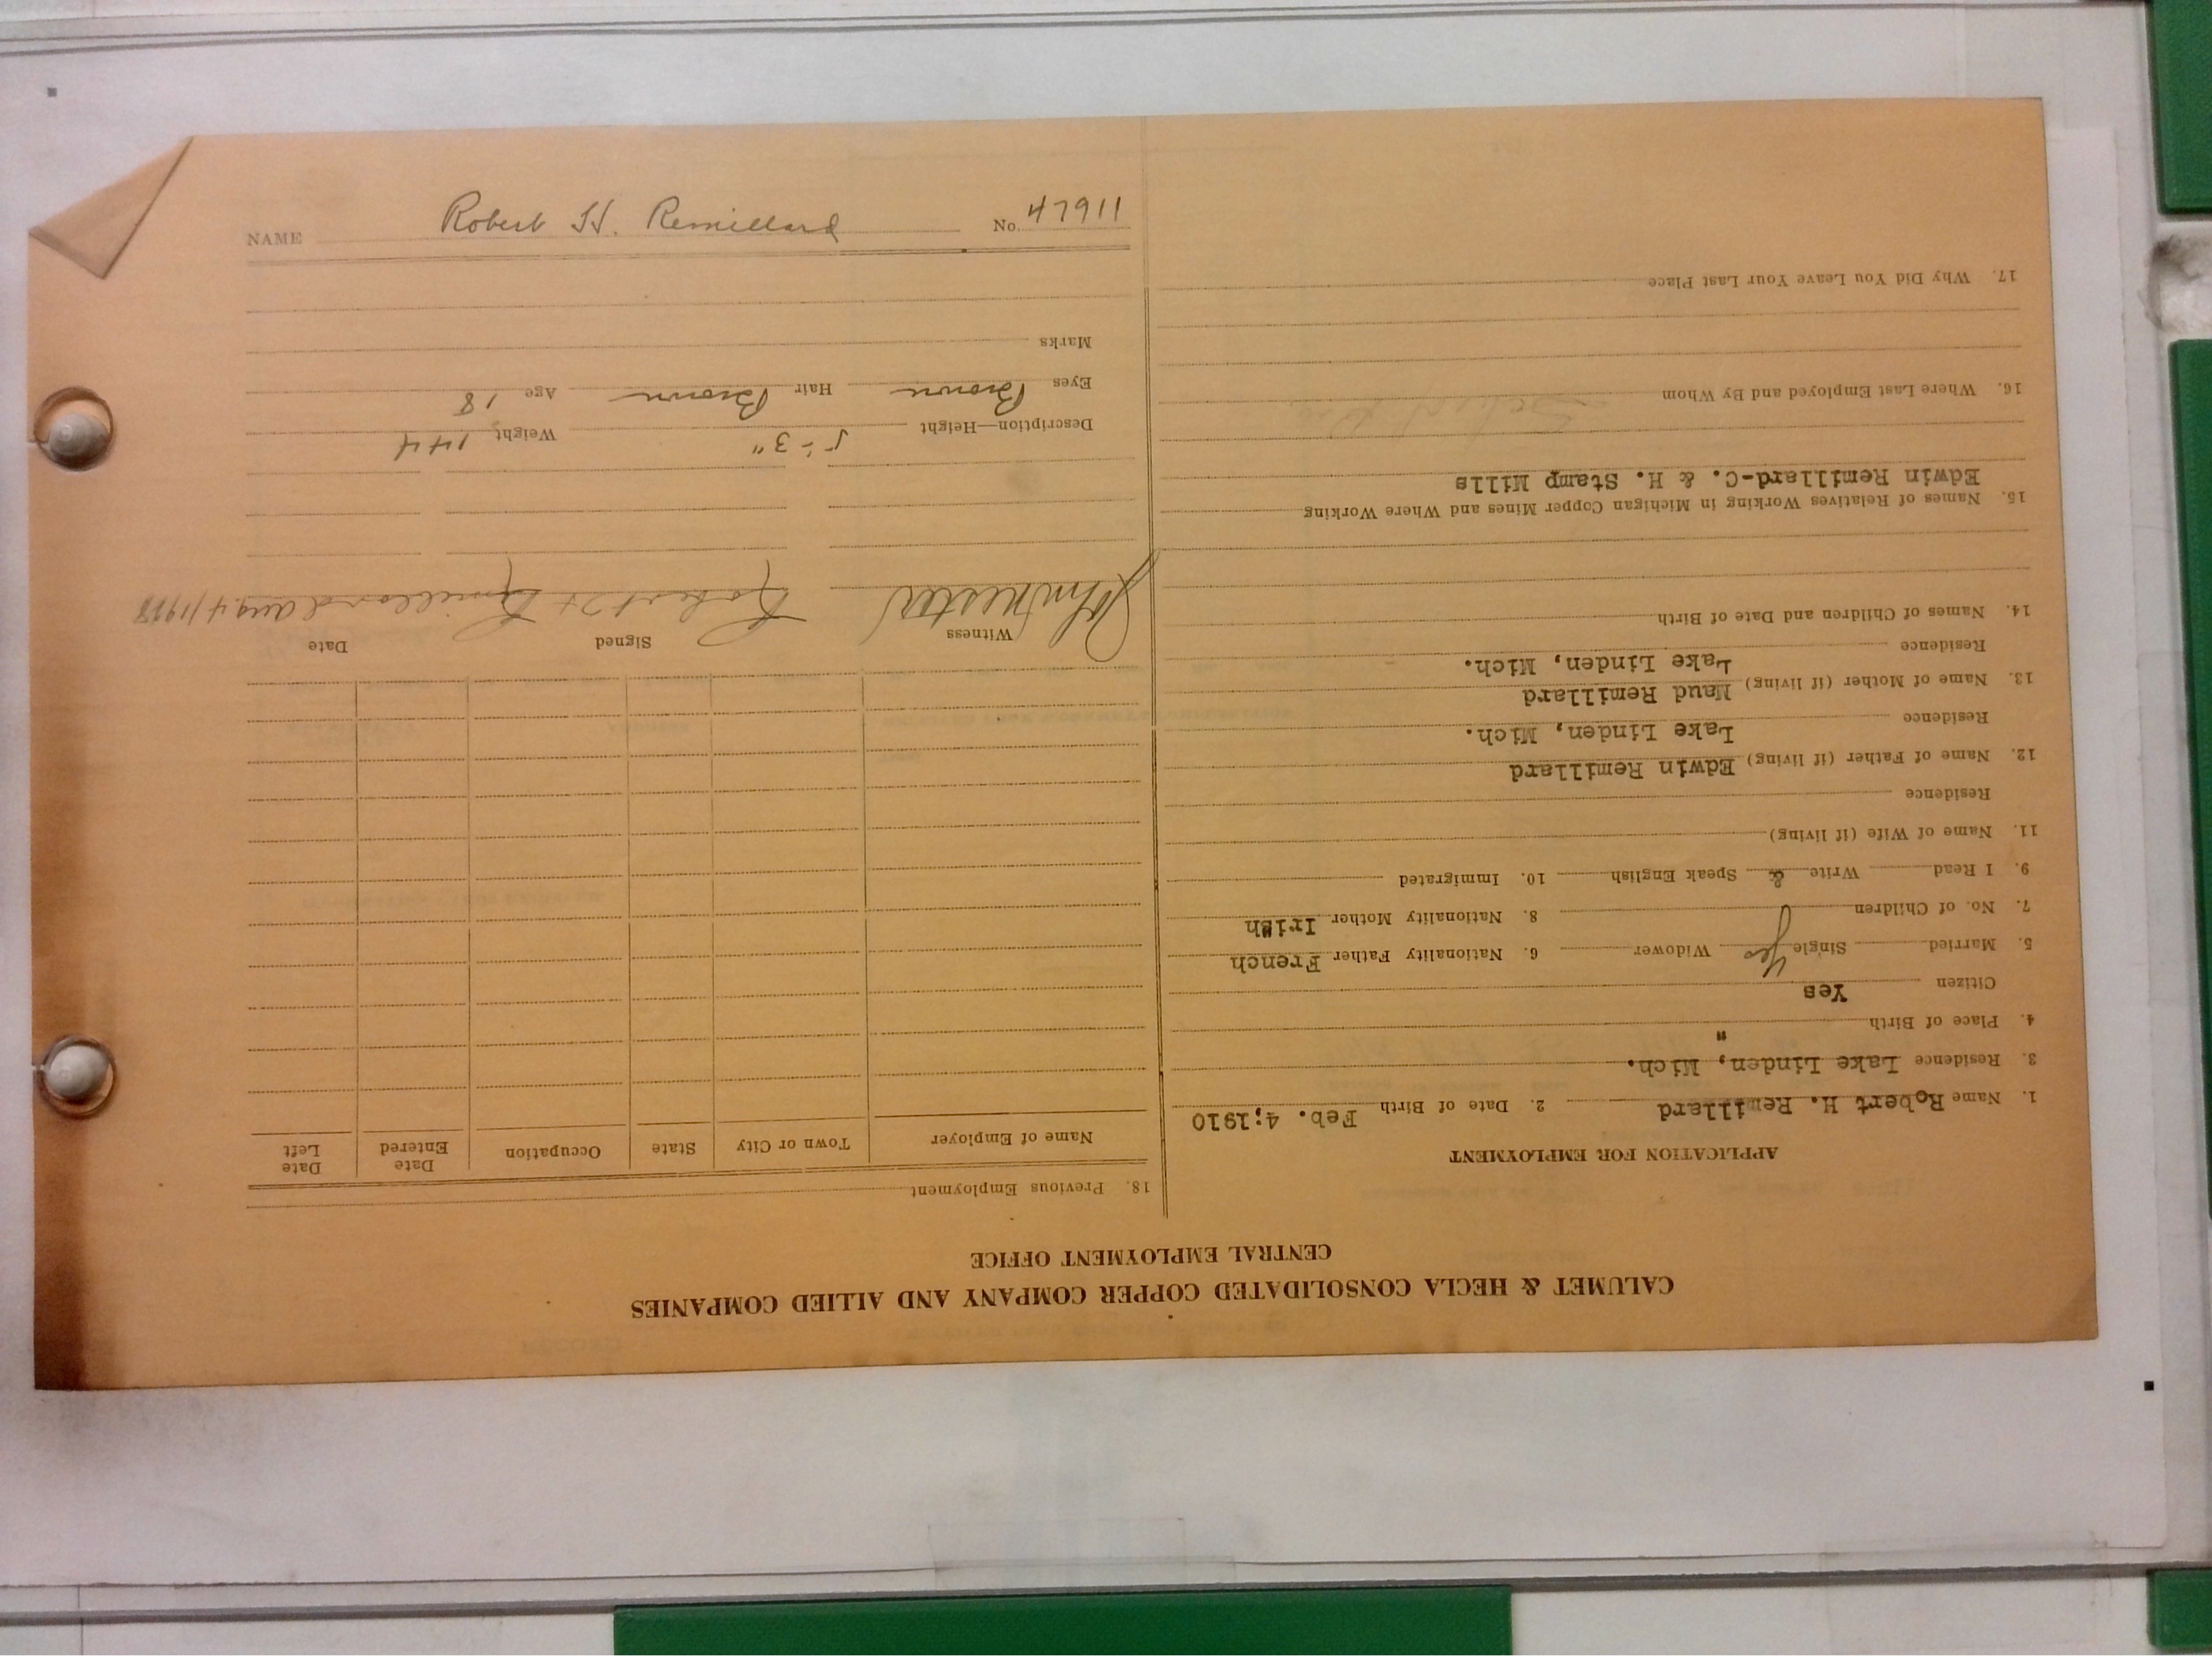 CALUMET & HECLA CONSOLIDATED COPPER COMPANY AND ALLIED COMPANIES
CENTRAL EMPLOYMENT OFFICE
APPLICATION FOR EMPLOYMENT
1. Name Robert H. Remillard 2. Date of Birth Feb. 4;1910
3. Residence Lake Linden, Mich.
4. Place of Birth "
Citizen Yes
5. Married Single Yes Widower 6. Nationality Father French
7. No. of Children 8. Nationality Mother Irish
9. I Read Write & Speak English 10. Immigrated
11. Name of Wife (if living)
Residence
12. Name of Father (if living) Edwin Remillard
Residence Lake Linden, Mich.
13. Name of Mother (if living) Maud Remillard
Residence Lake Linden, Mich.
14. Names of Children and Date of Birth
15. Names of Relatives Working in Michigan Copper Mines and Where Working
Edwin Remillard-C. & H. Stamp Mills
16. Where Last Employed and By Whom
17. Why Did You Leave Your Last Place
18. Previous Employment
Name of Employer Town or City State Occupation Date Entered Date Left
Witness Signed Date
Robert H Remillard Aug. 4/1928
Description—Height 5-3" Weight 144
Eyes Brown Hair Brown Age 18
Marks
NAME Robert H. Remillard No. 47911